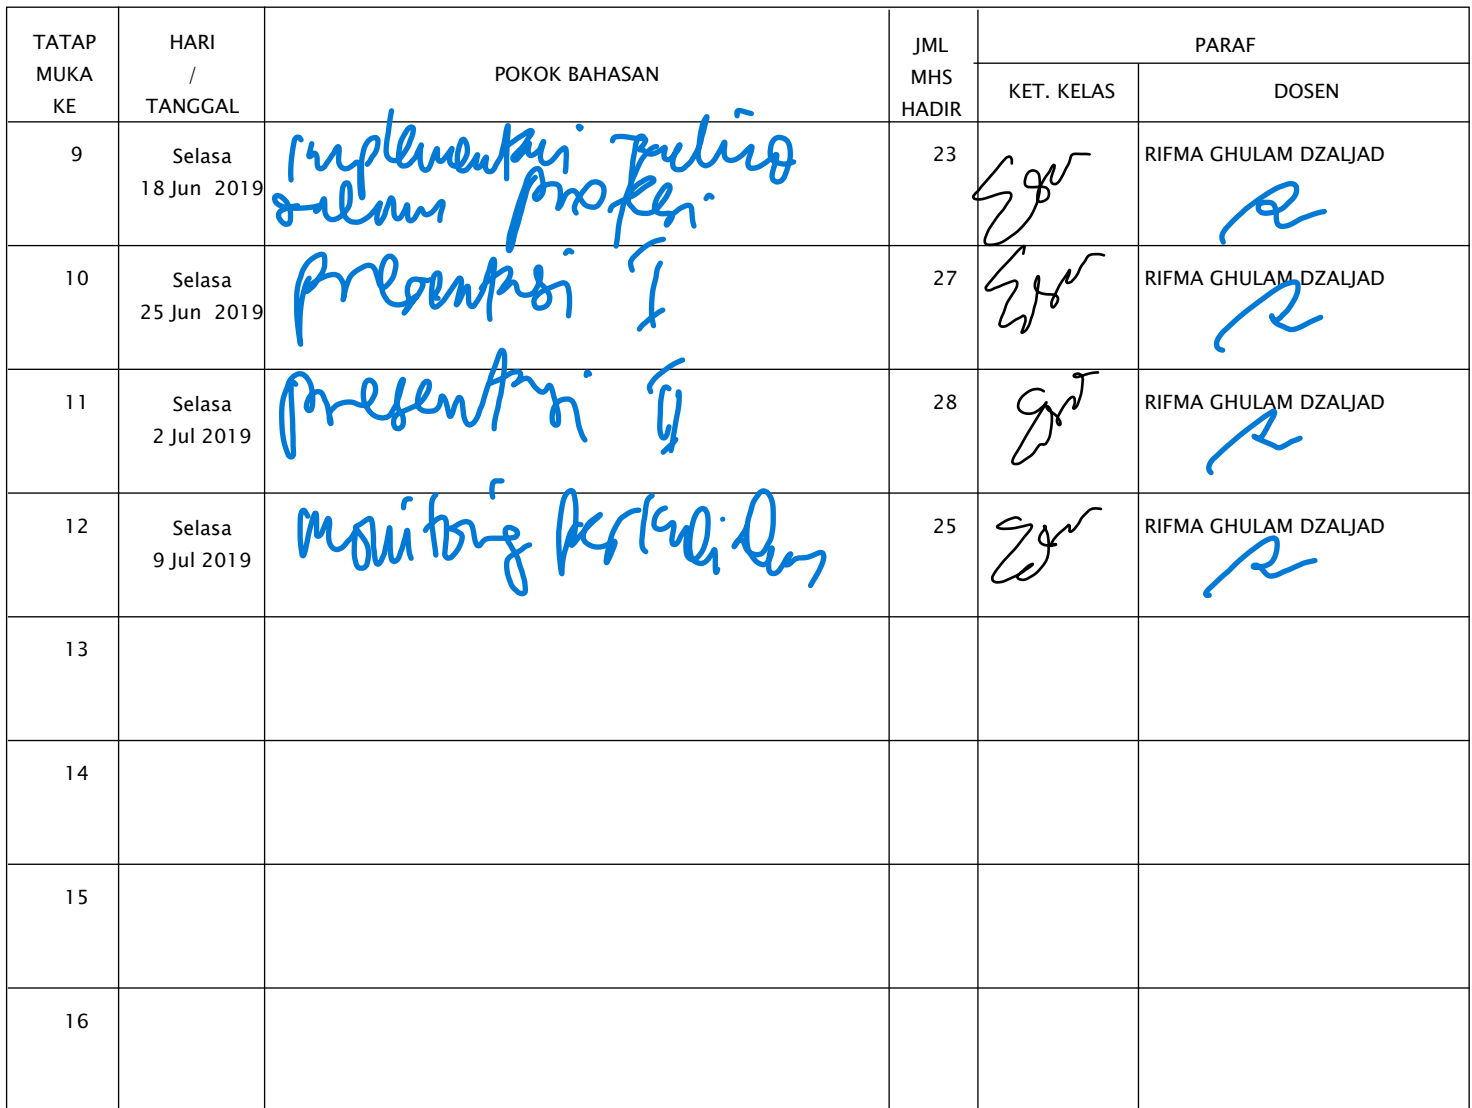 TATAP MUKA KE HARI / TANGGAL POKOK BAHASAN JML MHS HADIR PARAF
KET. KELAS DOSEN
9 Selasa 18 Jun 2019 implementasi dalam profesi 23 RIFMA GHULAM DZALJAD
10 Selasa 25 Jun 2019 presentasi I 27 RIFMA GHULAM DZALJAD
11 Selasa 2 Jul 2019 presentasi II 28 RIFMA GHULAM DZALJAD
12 Selasa 9 Jul 2019 monitoring 25 RIFMA GHULAM DZALJAD
13
14
15
16